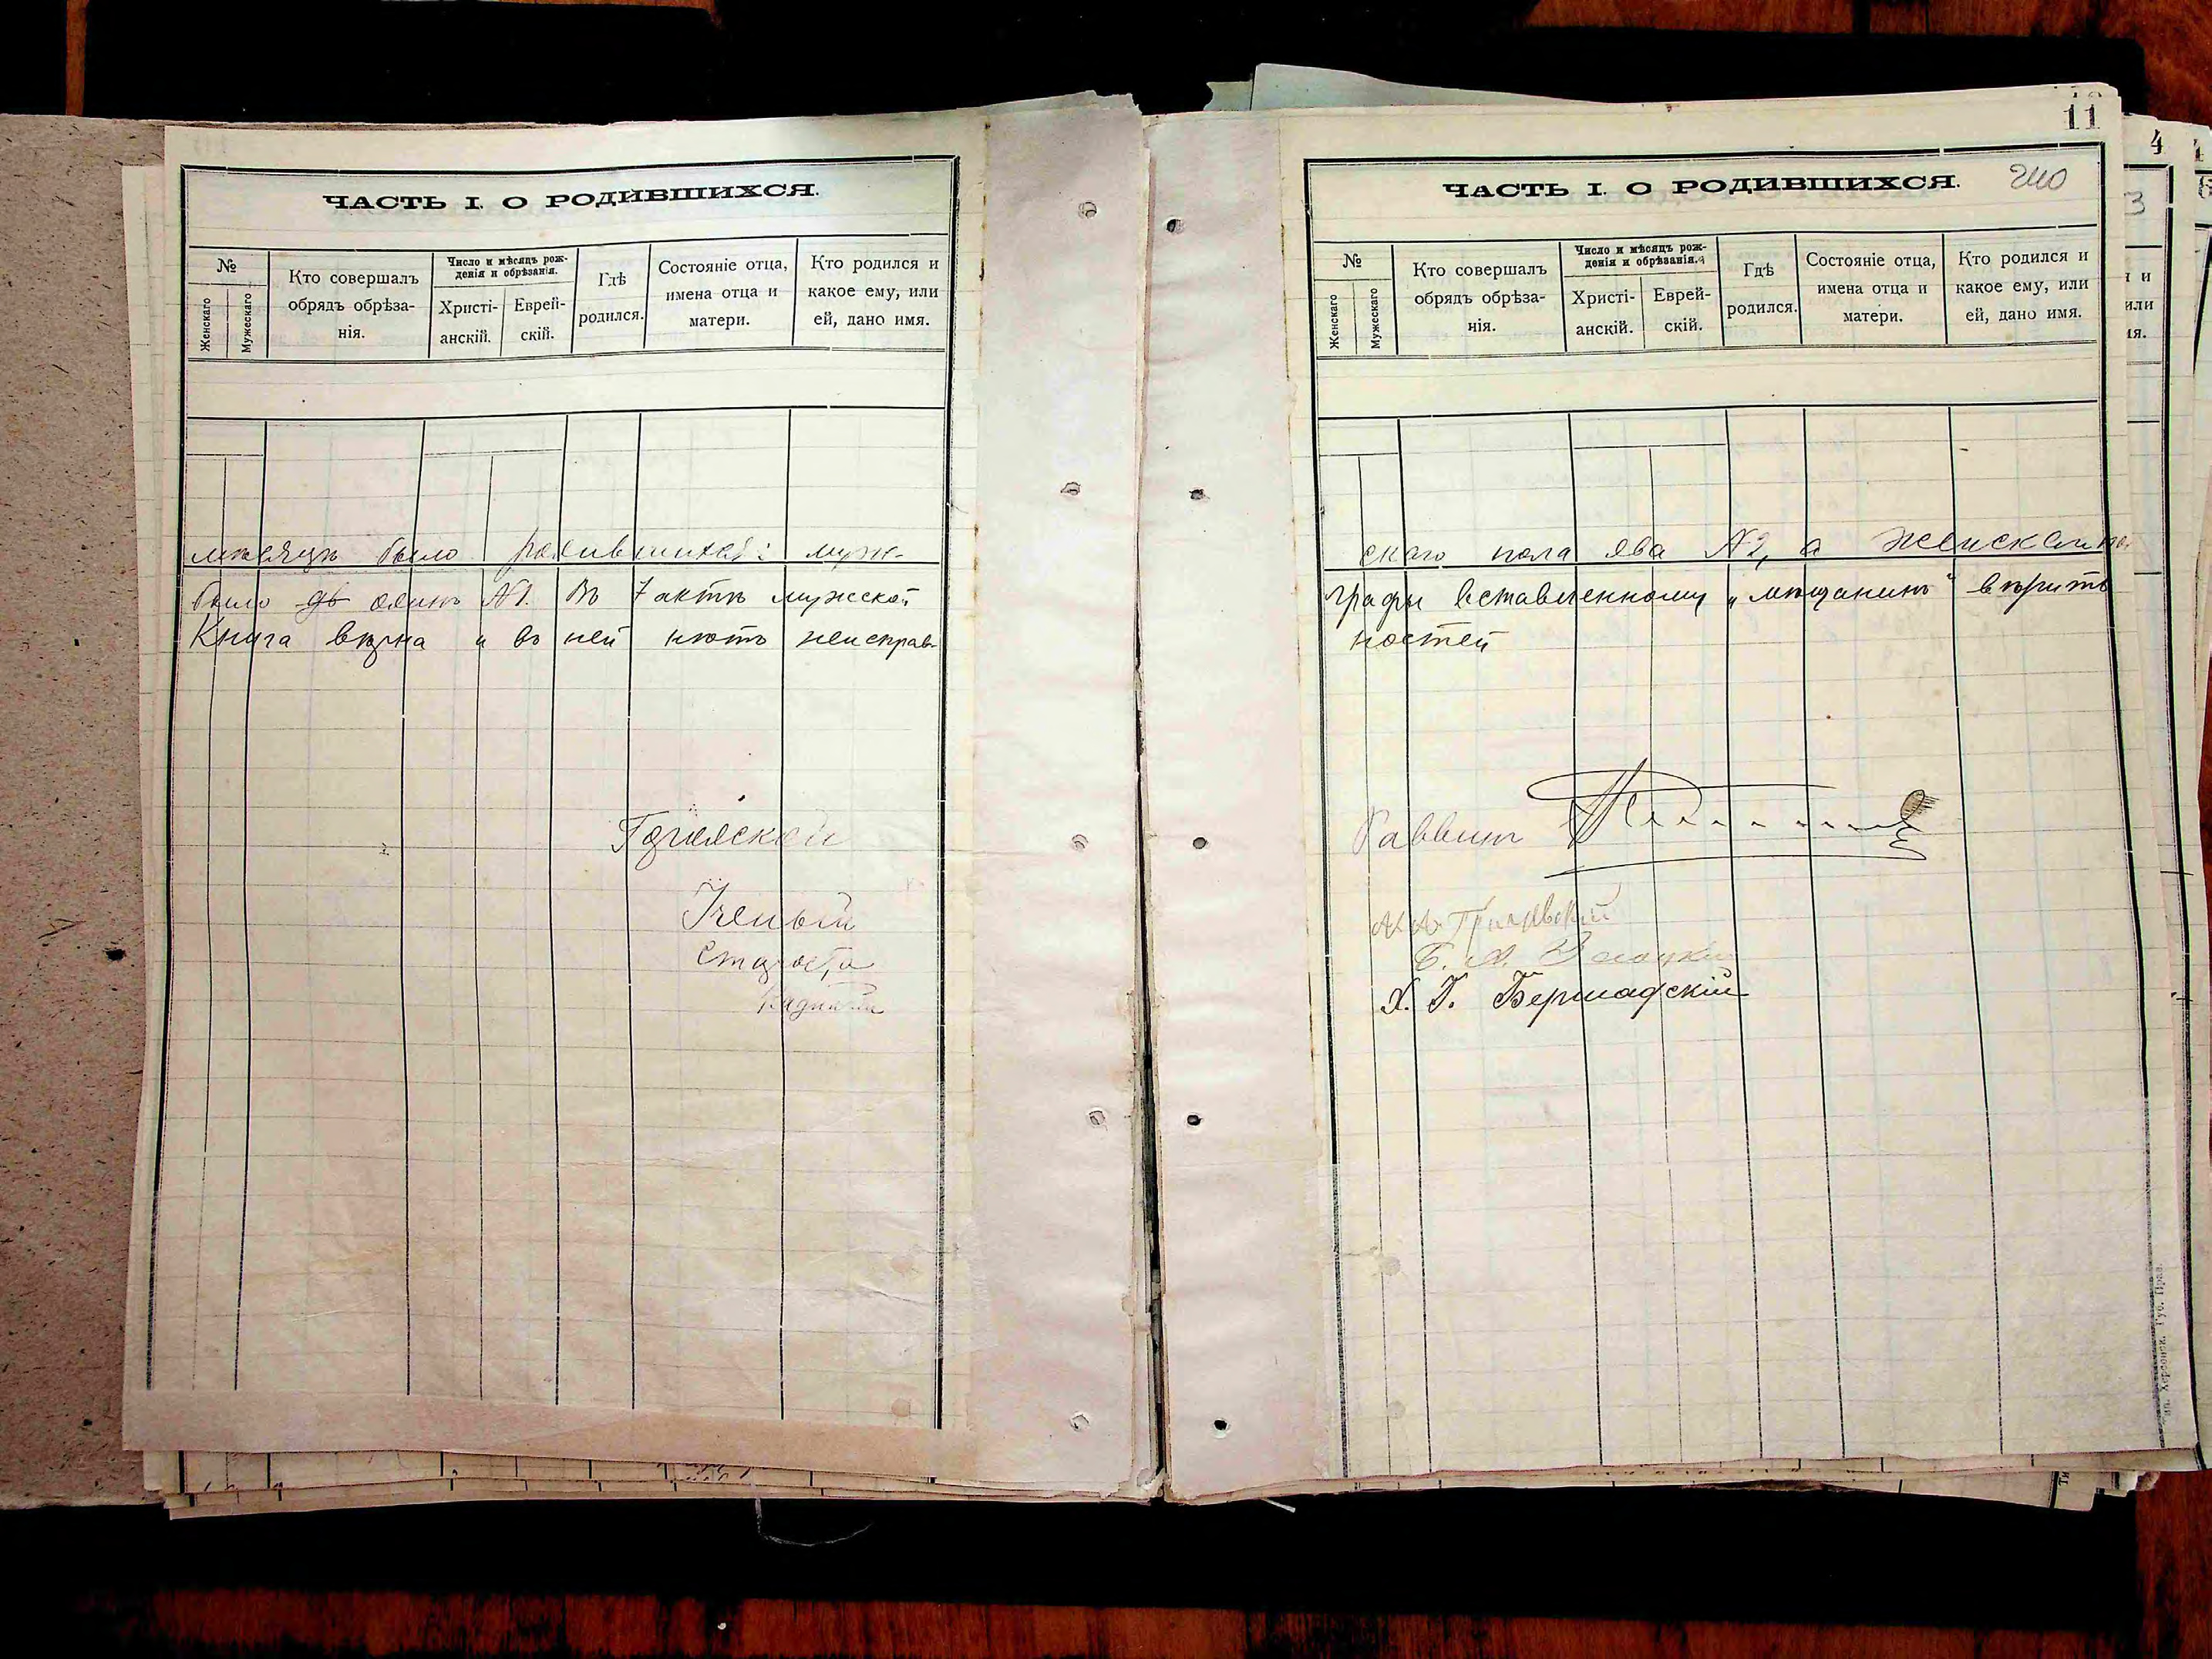 11
240
ЧАСТЬ I. О РОДИВШИХСЯ.
№
Женскаго
Мужескаго
Кто совершалъ
обрядъ обрѣза-
нія.
Число и мѣсяцъ рож-
денія и обрѣзанія.
Христі-
анскій.
Еврей-
скій.
Гдѣ
родился.
Состояніе отца,
имена отца и
матери.
Кто родился и
какое ему, или
ей, дано имя.
мѣсяцъ было родившихся: муж-
было дв одинъ №1. Въ 7 актѣ мужской
Книга вѣрна и въ ней нѣтъ неисправ-
Ученый
Староста
ЧАСТЬ I. О РОДИВШИХСЯ.
№
Женскаго
Мужескаго
Кто совершалъ
обрядъ обрѣза-
нія.
Число и мѣсяцъ рож-
денія и обрѣзанія.
Христі-
анскій.
Еврей-
скій.
Гдѣ
родился.
Состояніе отца,
имена отца и
матери.
Кто родился и
какое ему, или
ей, дано имя.
скаго пола два №2, а женскаго по-
графы вставленному „мѣщанинъ" вѣрить
ностей
Раввинъ
Х. Г. Бершадскій
Тип. Херсонск. Губ. Прав.
4
3